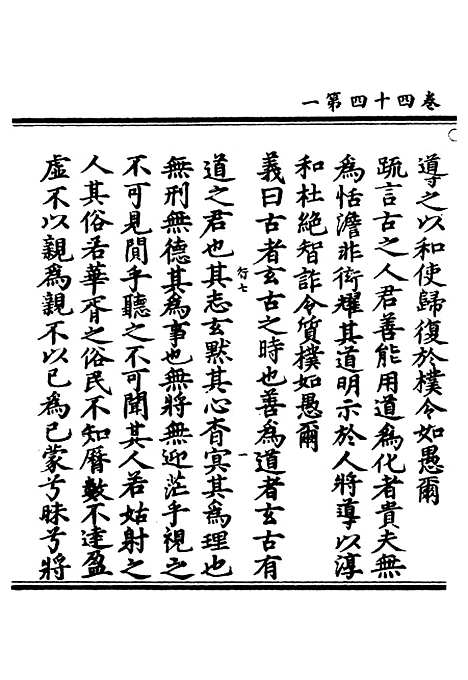 卷四十四第一
導之以和使歸復於樸令如愚爾
䟽言古之人君善能用道為化者貴夫無
為恬澹非衒耀其道明示於人將導以淳
和杜絕智詐令質樸如愚爾
義曰古者玄古之時也善為道者玄古有
行七
一
道之君也其志玄默其心杳冥其為理也
無刑無德其為事也無將無迎茫乎視之
不可見閴乎聽之不可聞其人若姑射之
人其俗若華胥之俗民不知曆數不達盈
虛不以親為親不以己為己蒙兮昧兮將